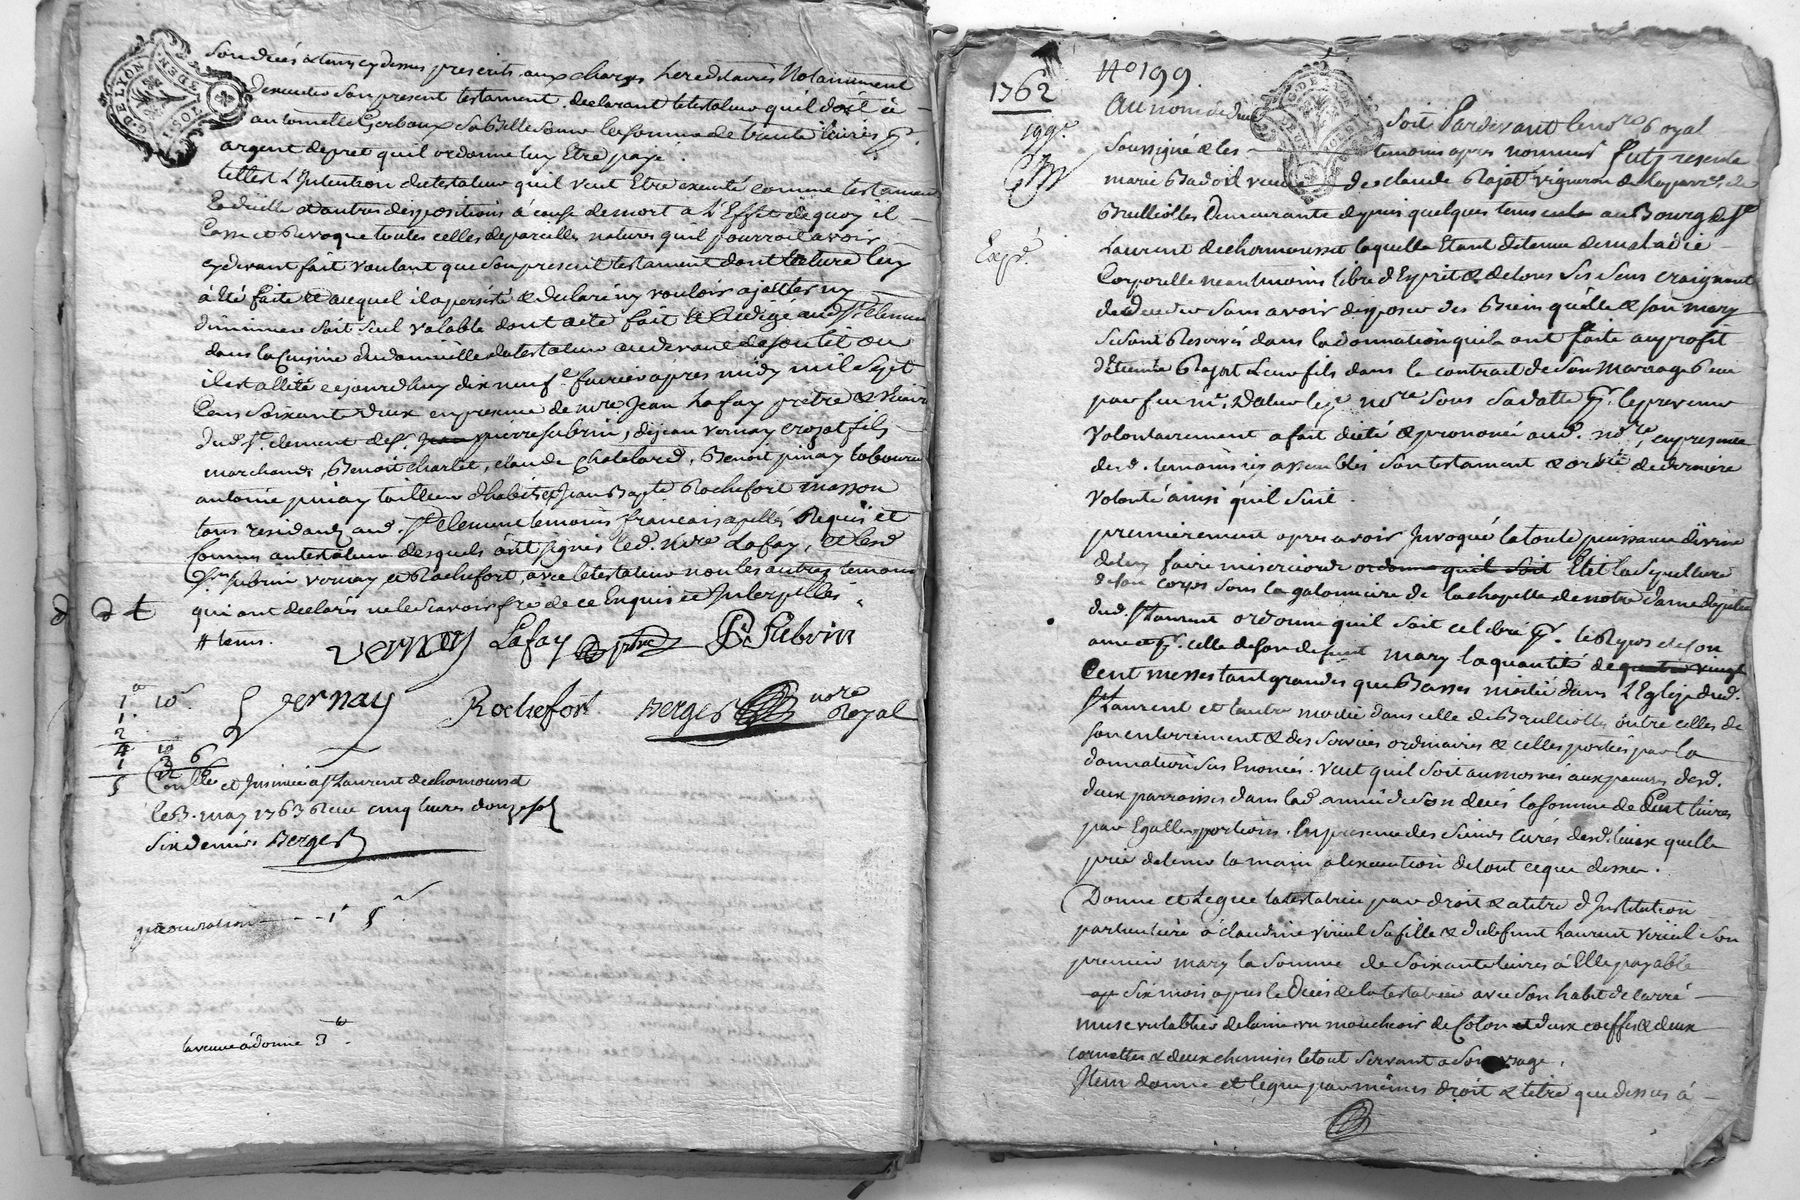 G. DE LYON
DEN
SOLS
son décès & tems cy dessus prescrits aux charges hereditaires Notamment
dexecuter son present testament, declarant le testateur qu'il doit à
antoinette Gerbaux sa Belle soeur la somme de trente livres
argent de pret qu'il ordonne luy Etre payé.
telle est L'Intention du testateur qu'il veut Etre executé comme testament
Codicille et autres dispositions à cause de mort a L'Effet de quoy il
Casse et Revoque toutes celles de pareilles natures quil pourroit avoir
cy devant fait voulant que son present testament dont lecture luy
à été faite et auquel il a persisté & declaré ny vouloir ajoutter ny
diminuer soit seul valable dont acte fait & Redigé aud. St. Clement
dans la Cuisine du domicille du testateur au devant de son lit ou
il est allité cejourdhuy dix neuf e. fevrier apres midy mil sept
Cens soixante deux en presence de mre Jean Lafay pretre & vicaire
dud. St. clement de Sr. pierre subrin, de jean vernay crozat fils
marchands, Benoit charlet, claude Chatelard, Benoit pinay laboureur
antoine pinay tailleur d'habits & Jean Bapte Rochefort masson
tous residants aud. St. Clement temoins francais apellés Requis et
Connus au testateur desquels ont signés led. Mre Lafay, et lesd.
Srs. subrin vernay et Rochefort, avec le testateur non les autres temoins
qui ont declarés ne le scavoir fre de ce Enquis et Interpellés
# tems.
vernay Lafay ptre P. Subrin
vernay Rochefort Berger nore Royal
1# 10s
1.
2.
4 10
1 3 6
5
Conllé et Insinué a St Laurent de chamousset
le 3. may 1763 Reçu cinq livres douze sols
six deniers Berger
procuration - - 1# 5s
la veuve à donné 3#
1762
No 199
199e.
Expé.
Au nom de dieu soit Pardevant le nore Royal
G. DE LYON
soussigné & les temoins apres nommés fut presente
marie Badoil veuve de claude Rajot vigneron de la parr.e de
Brulliolles demeurante depuis quelques tems au Bourg de St
Laurent de chamousset laquelle Etant detenue de maladie
Corporelle neantmoins libre d'Esprit & de tous ses sens craignant
de deceder sans avoir disposer des Biens qu'elle & son mary
se sont Reservés dans la donnation qu'ils ont faite au profit
d'Etienne Rajot Leur fils dans le contract de son mariage Reçu
par feu me. nore sous sa datte le prevenir
volontairement a fait dicté & prononcé aud. nore, en presence
desd. temoins icy assemblés son testament & ordce de derniere
volonté ainsi qu'il suit.
premierement apres avoir Invoqué la toute puissance divine
de luy faire misericorde ordonne quil soit Elit la sepulture
de son corps sous la galonniere de la chapelle de notre dame
dud. St Laurent ordonne qu'il soit celebré pr. le Repos de son
ame et pr. celle de son defunt mary la quantité de quatre vingt
Cent messes tant grandes que Basses moitié dans L'Eglize dud.
St Laurent et lautre moitié dans celle de Brulliolles outre celles de
son enterrement & des services ordinaires & celles portées par la
donnation sus Enoncée. Veut quil soit aumosnés aux pauvres desd.
deux parroisses dans lad. année de son decés la somme de Cent livres
par Egalles portions. En presence des sieurs curés desd. lieux quelle
prie de tenir la main a lexecution de tout ce que dessus.
Donne et Legue la testatrice par droit & a titre d'Institution
particuliere à claudine viricel sa fille & du defunt Laurent viricel son
premier mary la somme de soixante livres à Elle payable
six mois apres le decés de la testatrice avec son habit de carré
muse un tablier de laine un mouchoir de Coton & deux coeffes & deux
cornettes & deux chemises le tout servant a son usage.
Item donne et legue par mêmes droit & titre que dessus à